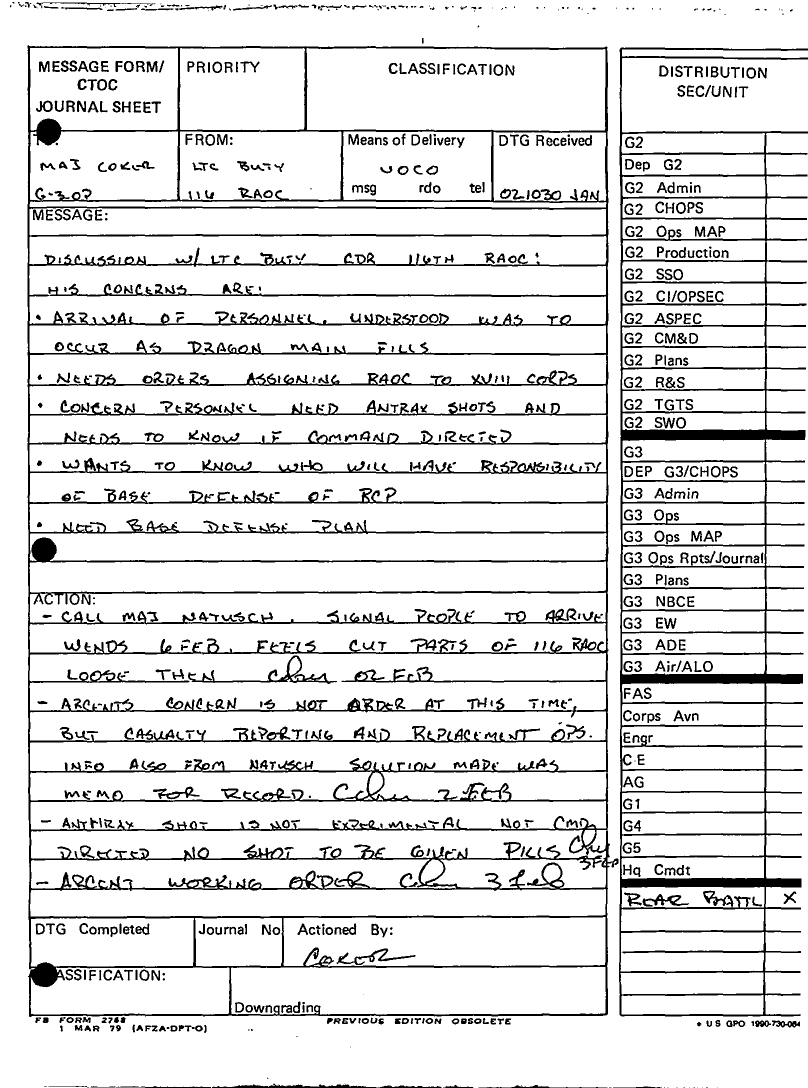 MESSAGE FORM/
CTOC
JOURNAL SHEET
PRIORITY
CLASSIFICATION
MAJ COKER
G-3.07
FROM:
LTC BUTY
116 RAOC
Means of Delivery
VOCO
msg rdo tel
DTG Received
021030 JAN
MESSAGE:
DISCUSSION W/ LTC BUTY CDR 116TH RAOC:
HIS CONCERNS ARE:
• ARRIVAL OF PERSONNEL. UNDERSTOOD WAS TO
OCCUR AS DRAGON MAIN FILLS
• NEEDS ORDERS ASSIGNING RAOC TO XVIII CORPS
• CONCERN PERSONNEL NEED ANTRAX SHOTS AND
NEEDS TO KNOW IF COMMAND DIRECTED
• WANTS TO KNOW WHO WILL HAVE RESPONSIBILITY
OF BASE DEFENSE OF RCP
• NEED BASE DEFENSE PLAN
ACTION:
- CALL MAJ NATUSCH. SIGNAL PEOPLE TO ARRIVE
WENDS 6 FEB. FEELS CUT PARTS OF 116 RAOC
LOOSE THEN Coker 02 FEB
- ARCENTS CONCERN IS NOT ORDER AT THIS TIME,
BUT CASUALTY REPORTING AND REPLACEMENT OPS.
INFO ALSO FROM NATUSCH SOLUTION MADE WAS
MEMO FOR RECORD. Coker 2 FEB
- ANTHRAX SHOT IS NOT EXPERIMENTAL NOT CMD
DIRECTED NO SHOT TO BE GIVEN PILLS
3 FEB
- ARCENT WORKING ORDER Coker 3 feb
DTG Completed
Journal No
Actioned By:
COKER
ASSIFICATION:
Downgrading
FB FORM 2768
1 MAR 79 (AFZA-DPT-O)
PREVIOUS EDITION OBSOLETE
DISTRIBUTION
SEC/UNIT
G2
Dep G2
G2 Admin
G2 CHOPS
G2 Ops MAP
G2 Production
G2 SSO
G2 CI/OPSEC
G2 ASPEC
G2 CM&D
G2 Plans
G2 R&S
G2 TGTS
G2 SWO
G3
DEP G3/CHOPS
G3 Admin
G3 Ops
G3 Ops MAP
G3 Ops Rpts/Journal
G3 Plans
G3 NBCE
G3 EW
G3 ADE
G3 Air/ALO
FAS
Corps Avn
Engr
C E
AG
G1
G4
G5
Hq Cmdt
REAR BATTL X
U S GPO 1990-730-084